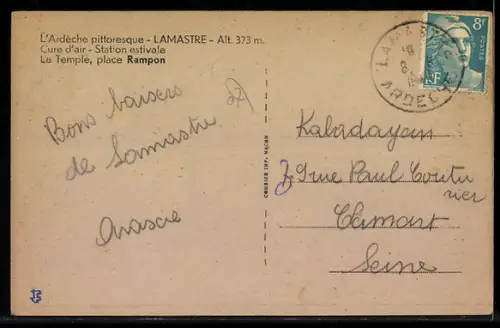 L'Ardèche pittoresque - LAMASTRE - Alt. 373 m.
Cure d'air - Station estivale
Le Temple, place Rampon
Bons baisers
de Lamastre
COMBIER IMP. MACON
LAMASTRE
ARDECHE
8F
POSTES
RF
Kaladayan
rue Paul Coutu
rier
Clamart
Seine